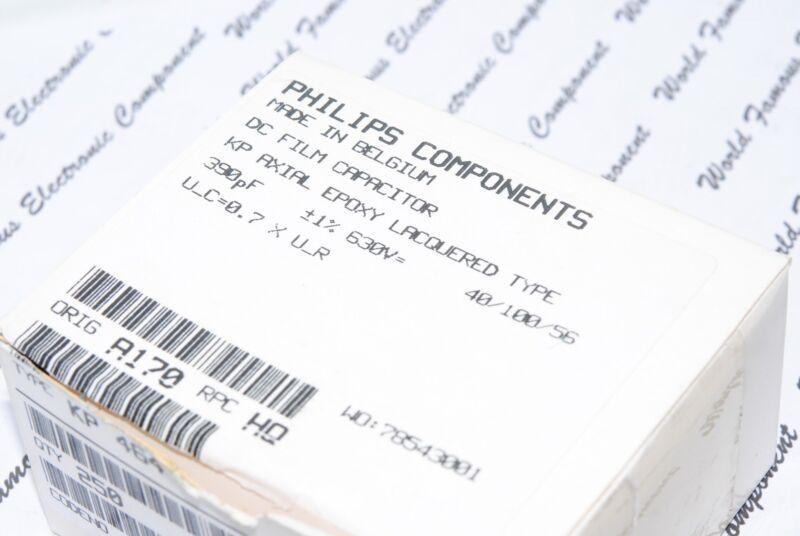 PHILIPS COMPONENTS
MADE IN BELGIUM
DC FILM CAPACITOR
KP AXIAL EPOXY LACQUERED TYPE
390pF ±1% 630V= 40/100/56
U_C=0.7 X U_R
ORIG A170 RPC HQ
WO:78543001
TYPE KP 464
QTY 250
CODENO
World Famous Electronic Component
World Famous Electronic Component
World Famous Electronic Component
World Famous